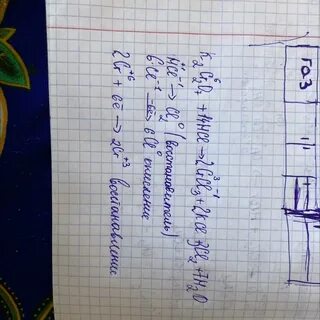 K₂Cr₂⁶O₇ + 14HCl → 2CrCl₃ + 2KCl 3Cl₂ + 7H₂O
HCl⁻¹ → Cl₂⁰ (восстановитель)
6Cl⁻¹ –6e → 6Cl⁰ окисление
2Cr⁺⁶ + 6e → 2Cr⁺³ восстанавление
ГОЗ